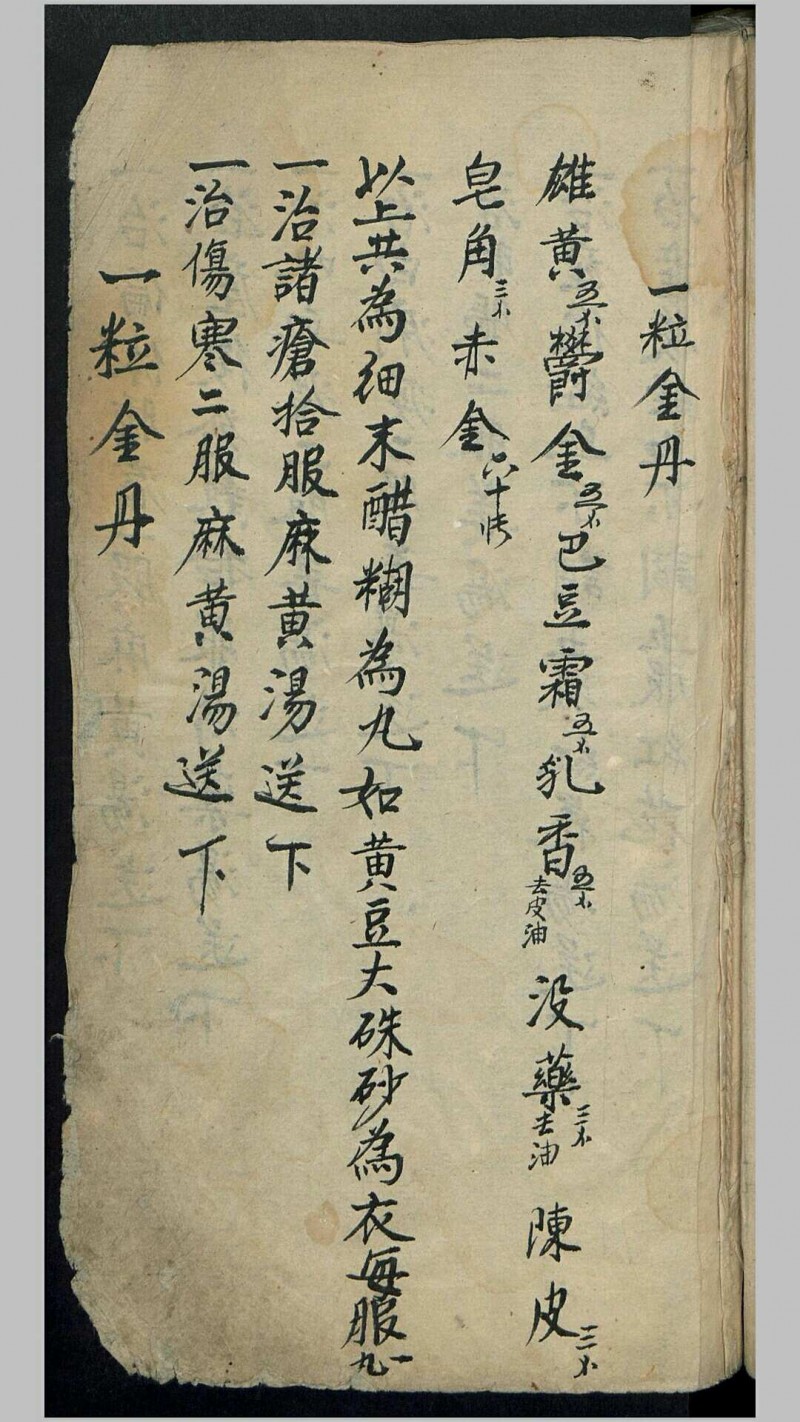 一粒金丹
雄黄五分欝金五分巴豆霜五分乳香五分去皮油没藥三分去油陳皮三分
皂角三分赤金六十張
以上共為細末醋糊為丸如黄豆大硃砂為衣每服一丸
一治諸瘡拾服麻黄湯送下
一治傷寒二服麻黄湯送下
一粒金丹